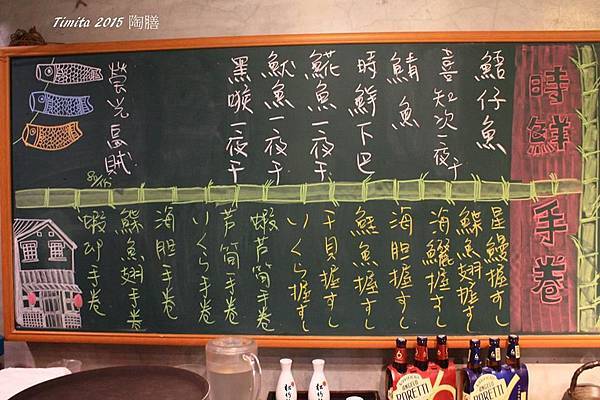 Timita 2015 陶膳
時鮮
手卷
鮎仔魚
喜知次一夜干
鯖魚
時鮮下巴
𩸽魚一夜干
魷魚一夜干
黑喉一夜干
螢光烏賊
星鰻握すし
鰈魚翅握すし
海鱺握すし
海胆握すし
鮭魚握すし
干貝握すし
いくら握すし
蝦芦筍手卷
芦筍手卷
いくら手卷
海胆手卷
鰈魚翅手卷
蝦卵手卷
ANGELO
PORETTI
ANGELO
PORETTI